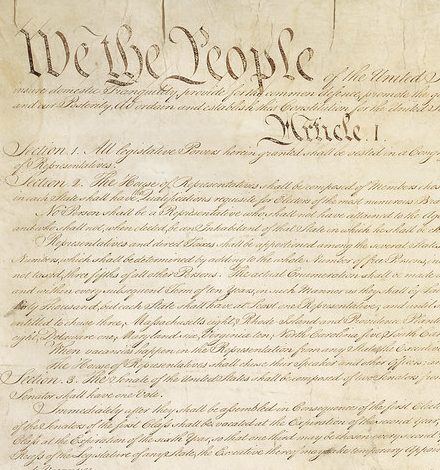 We the People of the United S
insure domestic Tranquility, provide for the common defence, promote the
and our Posterity, do ordain and establish this Constitution for the United
Article. I.
Section. 1. All legislative Powers herein granted shall be vested in a Cong
of Representatives.
Section. 2. The House of Representatives shall be composed of Members cho
in each State shall have Qualifications requisite for Electors of the most numerous Bran
No Person shall be a Representative who shall not have attained to the
and who shall not, when elected, be an Inhabitant of that State in which he shall be
Representatives and direct Taxes shall be apportioned among the several States
Numbers, which shall be determined by adding to the whole Number of free Persons,
not taxed, three fifths of all other Persons. The actual Enumeration shall be made
and within every subsequent Term of ten Years, in such Manner as they shall by
thirty Thousand, but each State shall have at Least one Representative; and until
entitled to chuse three, Massachusetts eight, Rhode Island and Providence
eight, Delaware one, Maryland six, Virginia ten, North Carolina five, South
When vacancies happen in the Representation from any State, the
The House of Representatives shall chuse their Speaker and other Officers;
Section. 3. The Senate of the United States shall be composed of two Senators
Senator shall have one Vote.
Immediately after they shall be assembled in Consequence of the first
of the Senators of the first Class shall be vacated at the Expiration of the second Year,
Class at the Expiration of the sixth Year, so that one third may be chosen every second
Recess of the Legislature of any State, the Executive thereof may make temporary